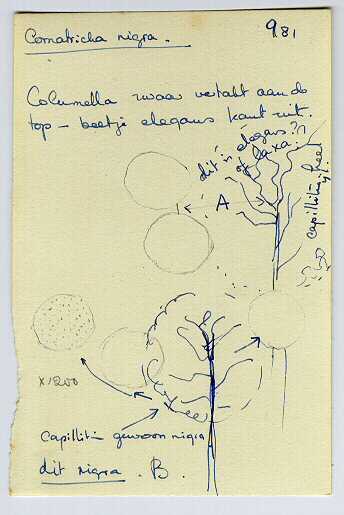 Comatricha nigra.
981
Columella zwaar vertakt aan de
top – beetje elegans kant uit.
dit is elegans??
of laxa.
A
capillitium heel
x 1200
capillitium gewoon nigra
dit nigra. B.